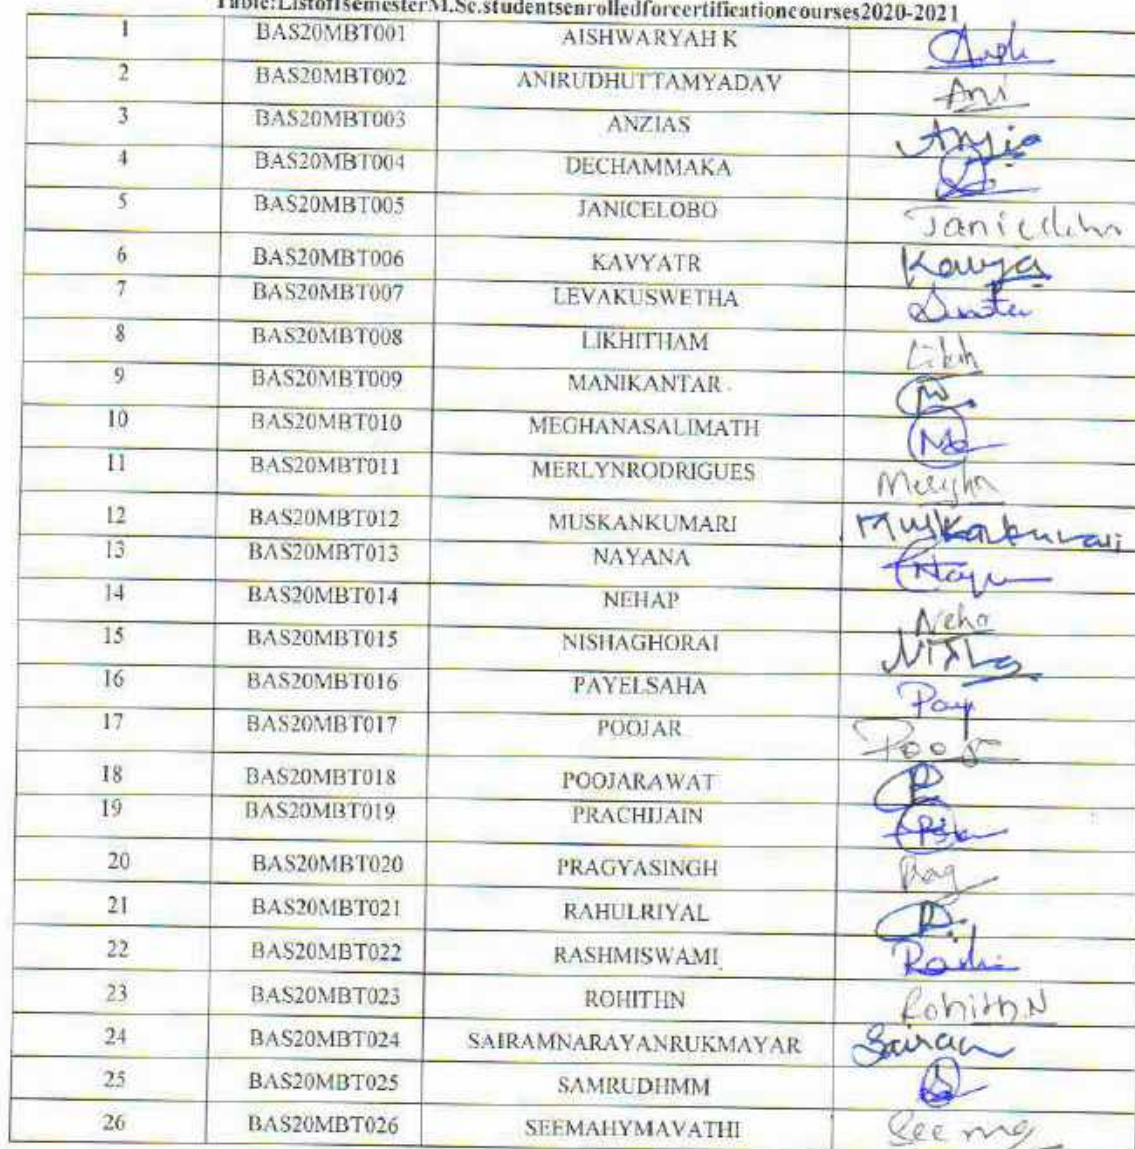 Table:ListofIsemesterM.Sc.studentsenrolledforcertificationcourses2020-2021
1 BAS20MBT001 AISHWARYAH K
2 BAS20MBT002 ANIRUDHUTTAMYADAV Ani
3 BAS20MBT003 ANZIAS
4 BAS20MBT004 DECHAMMAKA
5 BAS20MBT005 JANICELOBO
6 BAS20MBT006 KAVYATR Kavya
7 BAS20MBT007 LEVAKUSWETHA
8 BAS20MBT008 LIKHITHAM
9 BAS20MBT009 MANIKANTAR
10 BAS20MBT010 MEGHANASALIMATH
11 BAS20MBT011 MERLYNRODRIGUES
12 BAS20MBT012 MUSKANKUMARI Muskankumari
13 BAS20MBT013 NAYANA
14 BAS20MBT014 NEHAP Neha
15 BAS20MBT015 NISHAGHORAI Nisha
16 BAS20MBT016 PAYELSAHA Pay
17 BAS20MBT017 POOJAR Pooja
18 BAS20MBT018 POOJARAWAT
19 BAS20MBT019 PRACHIJAIN
20 BAS20MBT020 PRAGYASINGH
21 BAS20MBT021 RAHULRIYAL
22 BAS20MBT022 RASHMISWAMI
23 BAS20MBT023 ROHITHN Rohith N
24 BAS20MBT024 SAIRAMNARAYANRUKMAYAR Sairam
25 BAS20MBT025 SAMRUDHMM
26 BAS20MBT026 SEEMAHYMAVATHI Seema